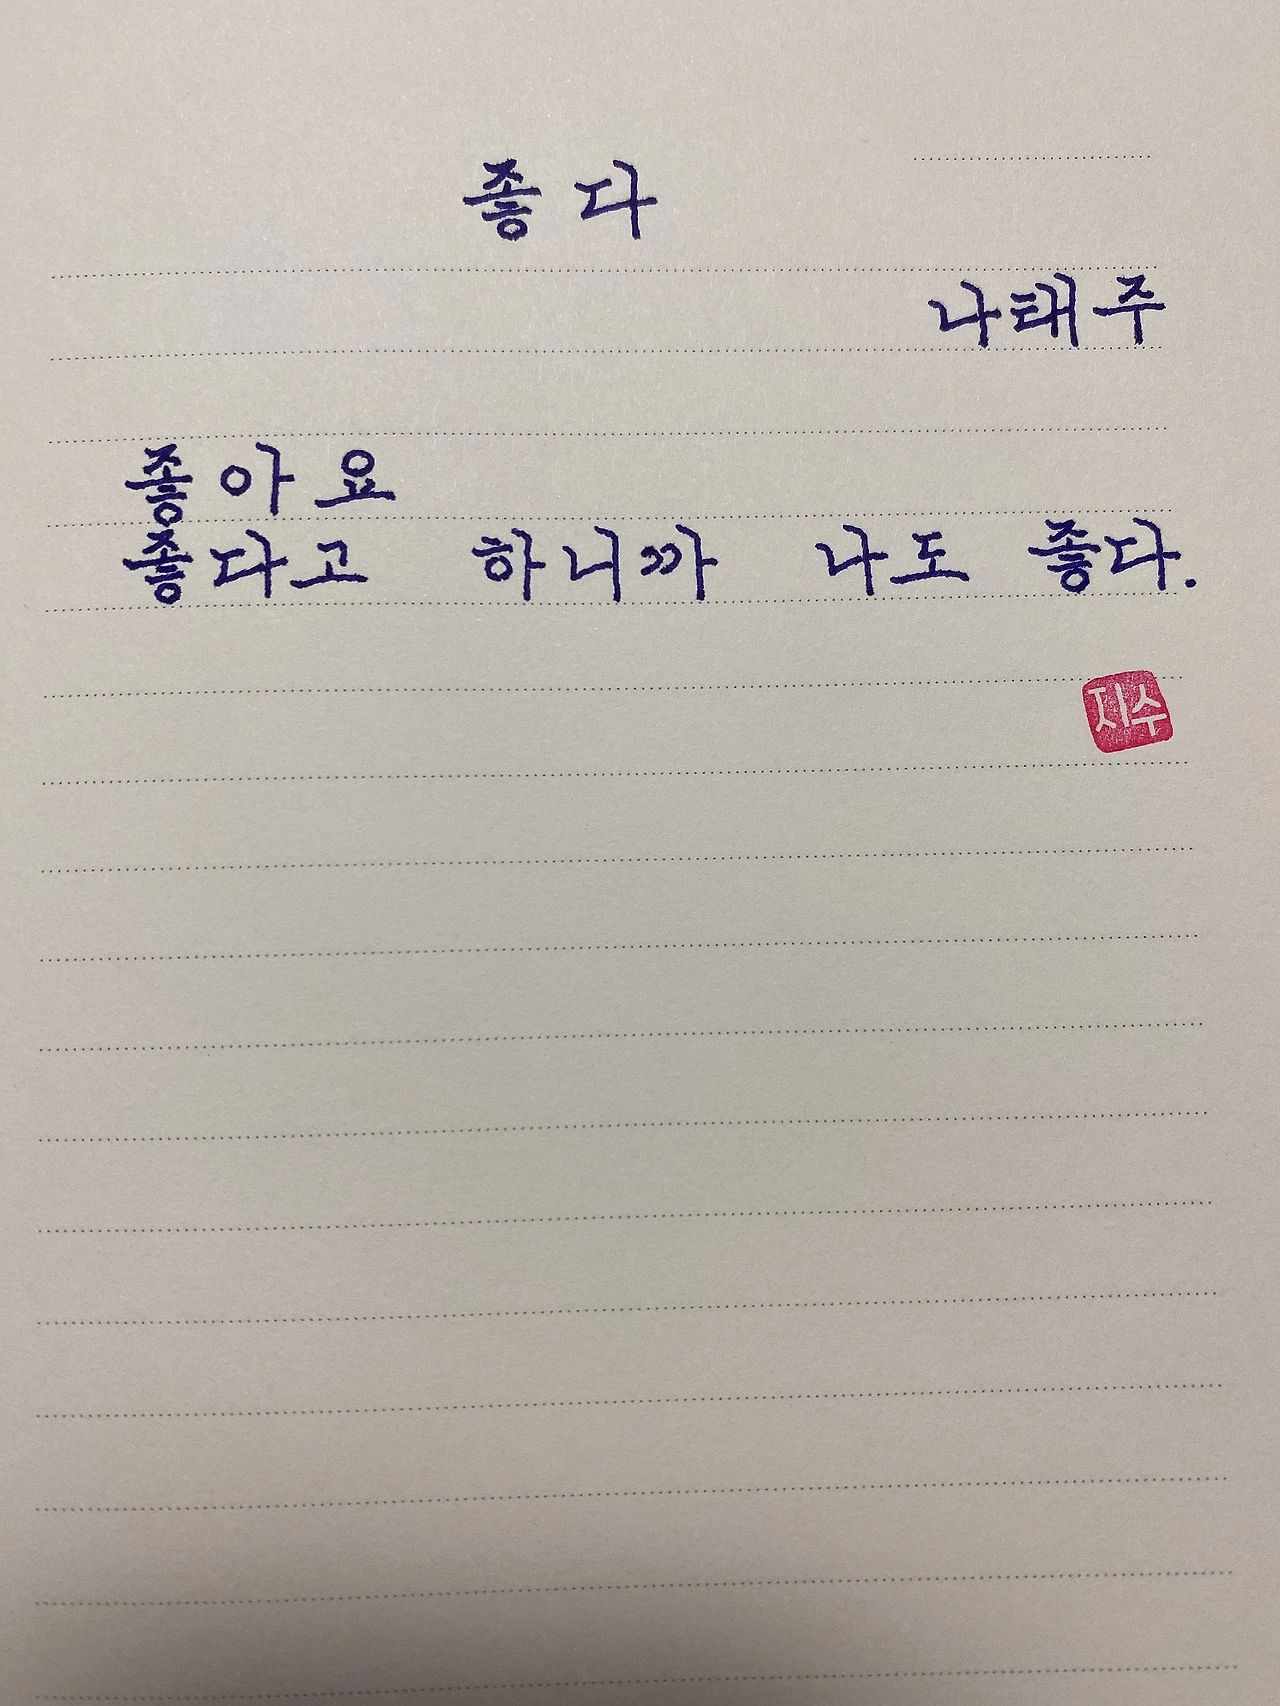 좋다
나태주
좋아요
좋다고 하니까 나도 좋다.
지수